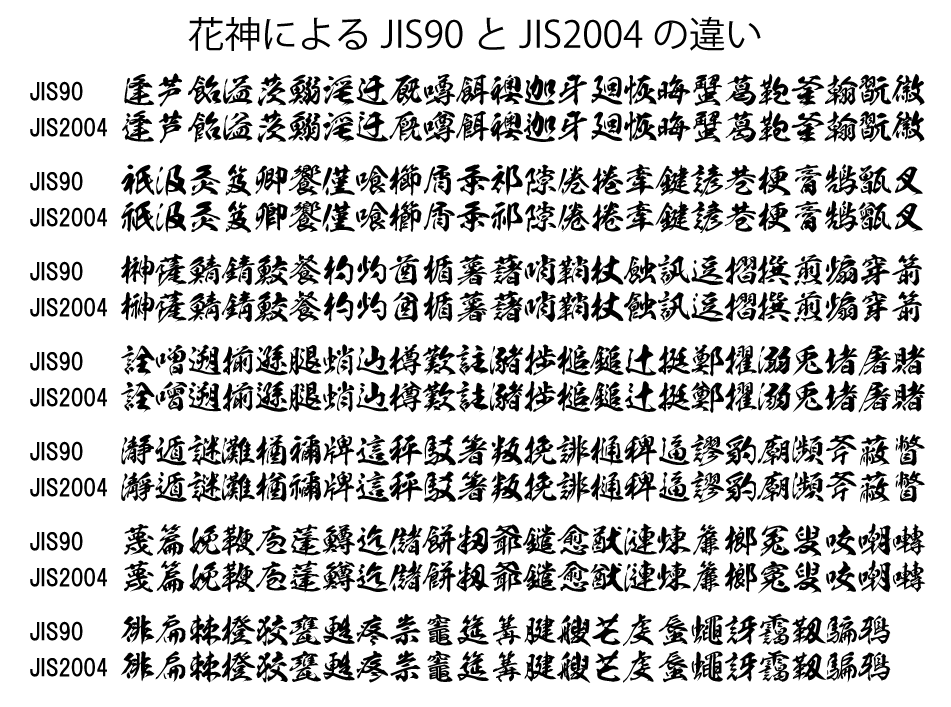 花神によるJIS90とJIS2004の違い
JIS90 逢芦飴溢茨鰯淫迂厩噂餌襖迦牙廻恢晦蟹葛鞄釜翰翫徽
JIS2004 逢芦飴溢茨鰯淫迂厩噂餌襖迦牙廻恢晦蟹葛鞄釜翰翫徽
JIS90 祇汲灸笈卿饗僅喰櫛屑粂祁隙倦捲牽鍵諺巷梗膏鵠甑叉
JIS2004 祇汲灸笈卿饗僅喰櫛屑粂祁隙倦捲牽鍵諺巷梗膏鵠甑叉
JIS90 榊薩鯖錆鮫餐杓灼酋楯薯藷哨鞘杖蝕訊逗摺撰煎煽穿箭
JIS2004 榊薩鯖錆鮫餐杓灼酋楯薯藷哨鞘杖蝕訊逗摺撰煎煽穿箭
JIS90 詮噌遡揃遜腿蛸辿樽歎註瀦捗槌鎚辻挺鄭擢溺兎堵屠賭
JIS2004 詮噌遡揃遜腿蛸辿樽歎註瀦捗槌鎚辻挺鄭擢溺兎堵屠賭
JIS90 瀞遁謎灘楢禰牌這秤駁箸叛挽誹樋稗逼謬豹廟瀕斧蔽瞥
JIS2004 瀞遁謎灘楢禰牌這秤駁箸叛挽誹樋稗逼謬豹廟瀕斧蔽瞥
JIS90 蔑篇娩鞭庖蓬鱒迄儲餅籾爺鑓愈猷漣煉簾榔冤叟咬嘲囀
JIS2004 蔑篇娩鞭庖蓬鱒迄儲餅籾爺鑓愈猷漣煉簾榔冤叟咬嘲囀
JIS90 徘扁棘橙狡甕甦疼祟竈筵篝腱艘芒虔蜃蠅訝靄靱騙鴉
JIS2004 徘扁棘橙狡甕甦疼祟竈筵篝腱艘芒虔蜃蠅訝靄靱騙鴉